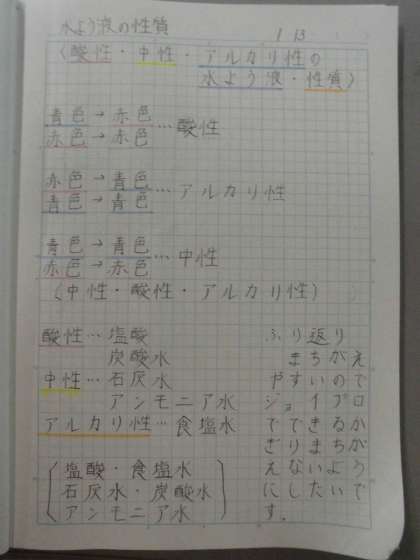 水よう液の性質 1 13
(酸性・中性・アルカリ性の
水よう液・性質)
青色→赤色
赤色→赤色…酸性
赤色→青色
青色→青色…アルカリ性
青色→青色
赤色→赤色…中性
(中性・酸性・アルカリ性)
酸性…塩酸
炭酸水
中性…石灰水
アンモニア水
アルカリ性…食塩水
塩酸・食塩水
石灰水・炭酸水
アンモニア水
ふり返り
まちがえ
やすいので
ジョイプロ
でできるか
ぎりまちが
えないよう
にしたいで
す。